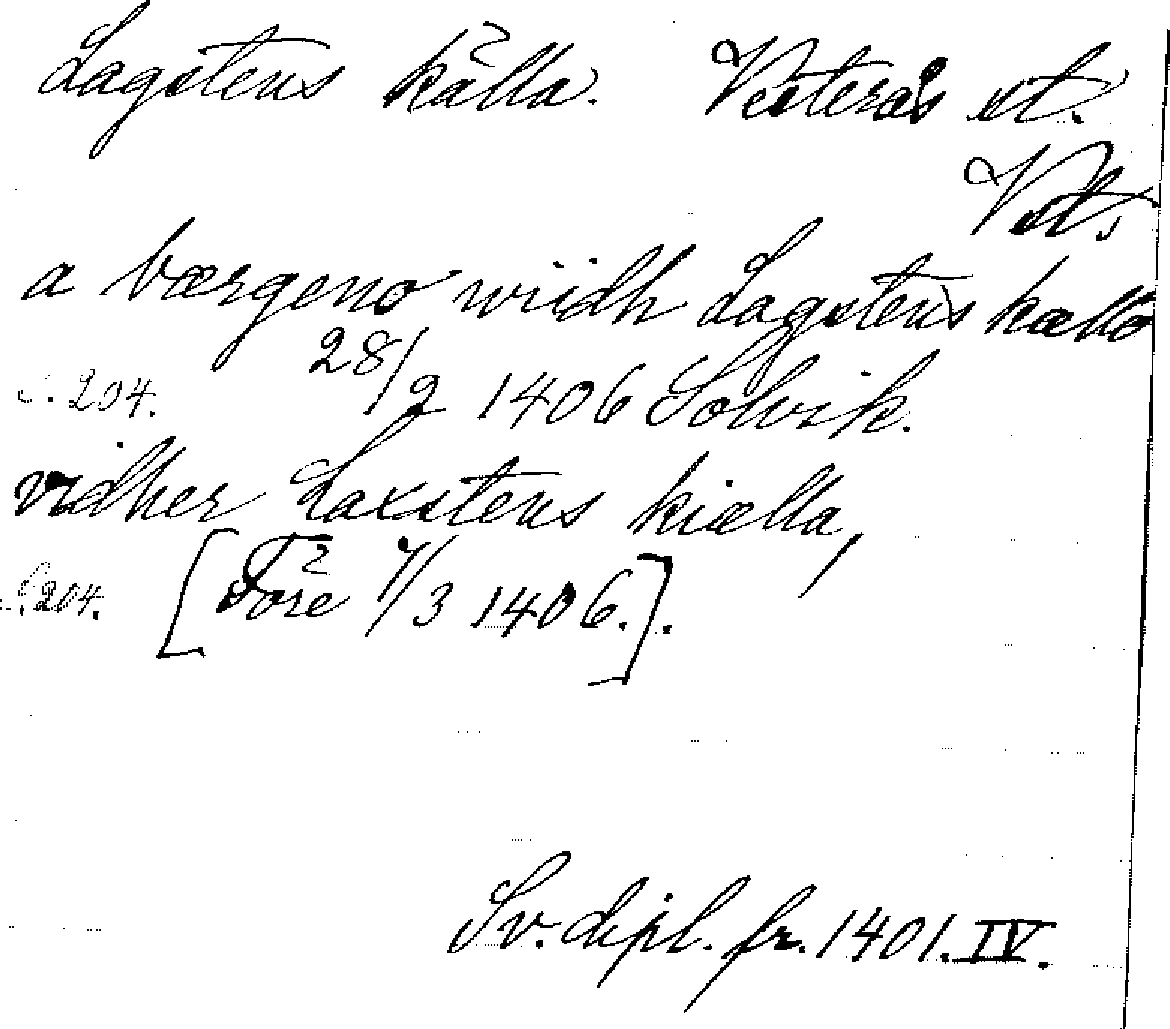 Lagstens källa. Vesterås st.
Vstm.
a bærgeno wiidh Lagstens kællo
S. 204. 28/2 1406 Solvik.
vidher Laxstens kiælla,
S. 204. [Före 7/3 1406.].
Sv. dipl. fr. 1401. IV.